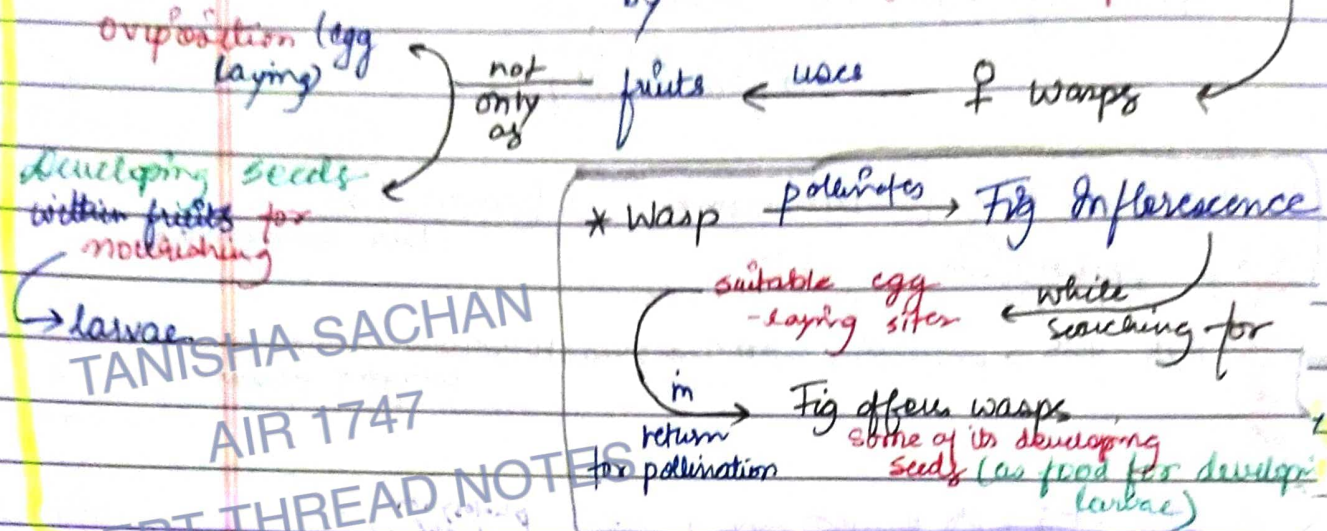 by
oviposition (egg
laying)
not
only
as
fruits
uses
♀ wasps
Developing seeds
within fruits for
nourishing
larvae
* Wasp pollinates Fig Inflorescence
suitable egg
-laying sites
while
searching for
in
return
for pollination
Fig offers wasps
some of its developing
seeds (as food for developi
larvae)
TANISHA SACHAN
AIR 1747
THREAD NOTES